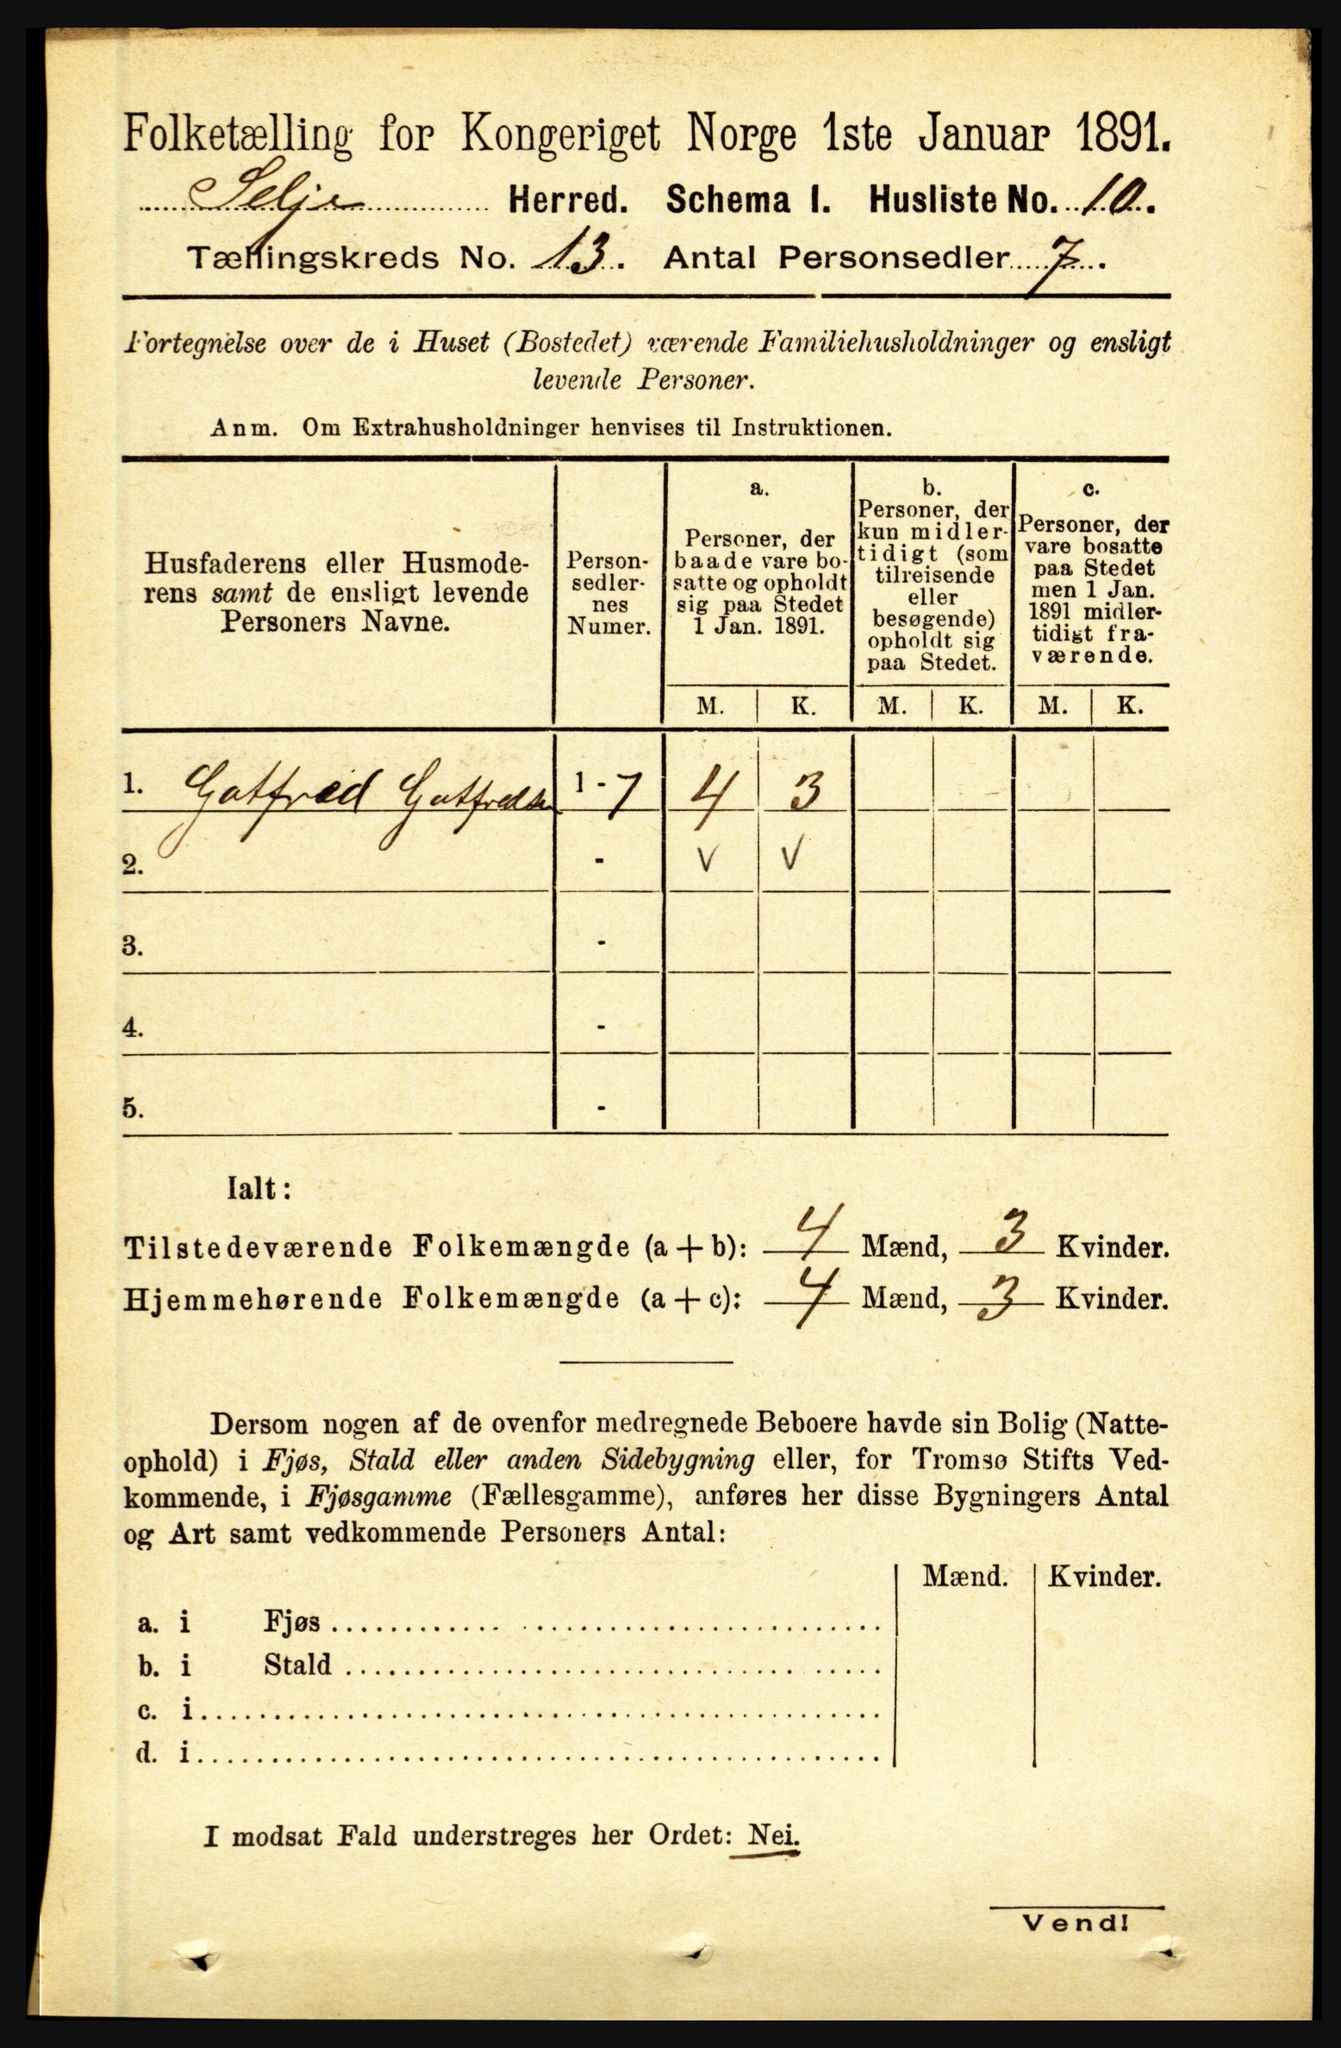 Folketælling for Kongeriget Norge 1ste Januar 1891.
Selje Herred. Schema I. Husliste No. 10.
Tællingskreds No. 13. Antal Personsedler 7.
Fortegnelse over de i Huset (Bostedet) værende Familiehusholdninger og ensligt
levende Personer.
Anm. Om Extrahusholdninger henvises til Instruktionen.
Husfaderens eller Husmode-
rens samt de ensligt levende
Personers Navne.
Person-
sedler-
nes
Numer.
a.
Personer, der
baade vare bo-
satte og opholdt
sig paa Stedet
1 Jan. 1891.
b.
Personer, der
kun midler-
tidigt (som
tilreisende
eller
besøgende)
opholdt sig
paa Stedet.
c.
Personer, der
vare bosatte
paa Stedet
men 1 Jan.
1891 midler-
tidigt fra-
værende.
M. K. M. K. M. K.
1. Gotfred Gotfredsen 1 - 7 4 3
2. - v v
3. -
4. -
5. -
Ialt:
Tilstedeværende Folkemængde (a + b): 4 Mænd, 3 Kvinder.
Hjemmehørende Folkemængde (a + c): 4 Mænd, 3 Kvinder.
Dersom nogen af de ovenfor medregnede Beboere havde sin Bolig (Natte-
ophold) i Fjøs, Stald eller anden Sidebygning eller, for Tromsø Stifts Ved-
kommende, i Fjøsgamme (Fællesgamme), anføres her disse Bygningers Antal
og Art samt vedkommende Personers Antal:
Mænd. Kvinder.
a. i Fjøs
b. i Stald
c. i
d. i
I modsat Fald understreges her Ordet: Nei.
Vend!